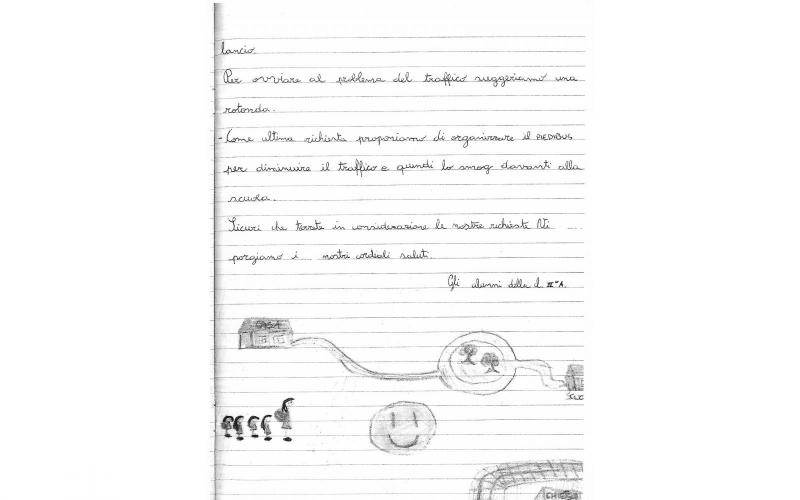 lancio.
Per ovviare al problema del traffico suggeriamo una
rotonda.
- Come ultima richiesta proponiamo di organizzare il PIEDIBUS
per diminuire il traffico e quindi lo smog davanti alla
scuola.
Sicuri che terrete in considerazione le nostre richieste Vi
porgiamo i nostri cordiali saluti.
Gli alunni della cl. IIᵃ A.
CASA
CHIESA